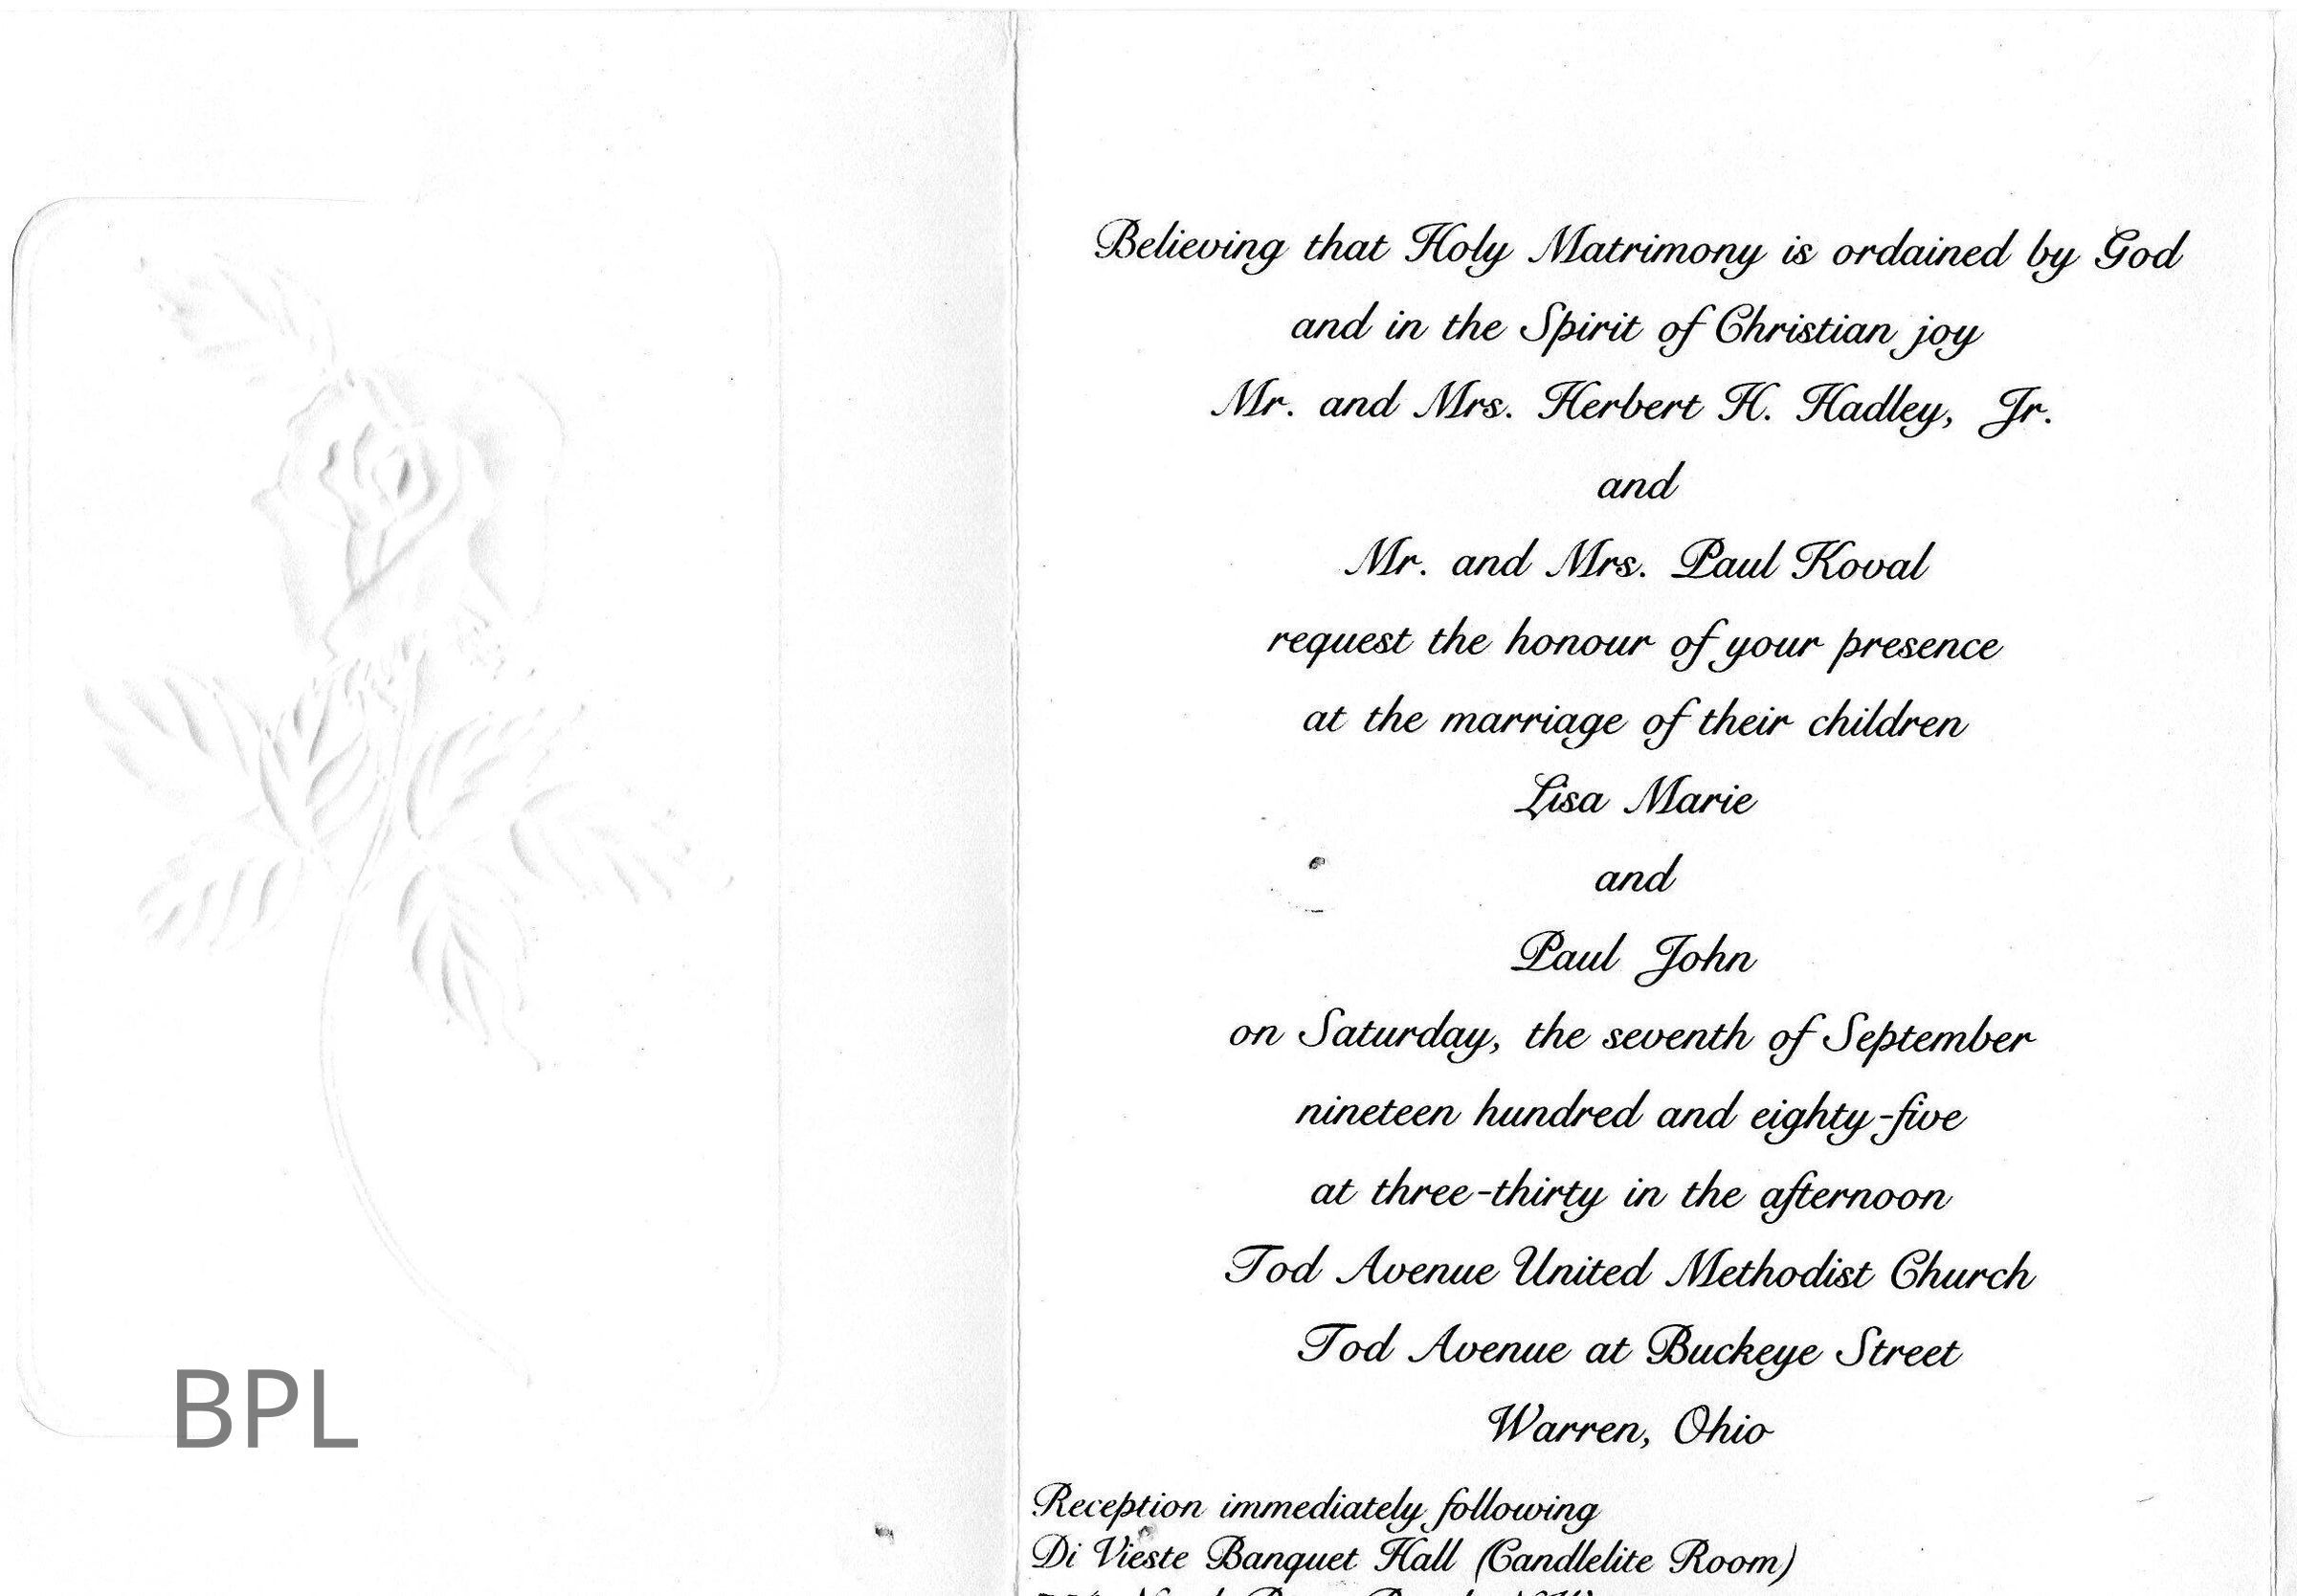 Believing that Holy Matrimony is ordained by God
and in the Spirit of Christian joy
Mr. and Mrs. Herbert H. Hadley, Jr.
and
Mr. and Mrs. Paul Koval
request the honour of your presence
at the marriage of their children
Lisa Marie
and
Paul John
on Saturday, the seventh of September
nineteen hundred and eighty-five
at three-thirty in the afternoon
Tod Avenue United Methodist Church
Tod Avenue at Buckeye Street
Warren, Ohio
Reception immediately following
Di Vieste Banquet Hall (Candlelite Room)
BPL